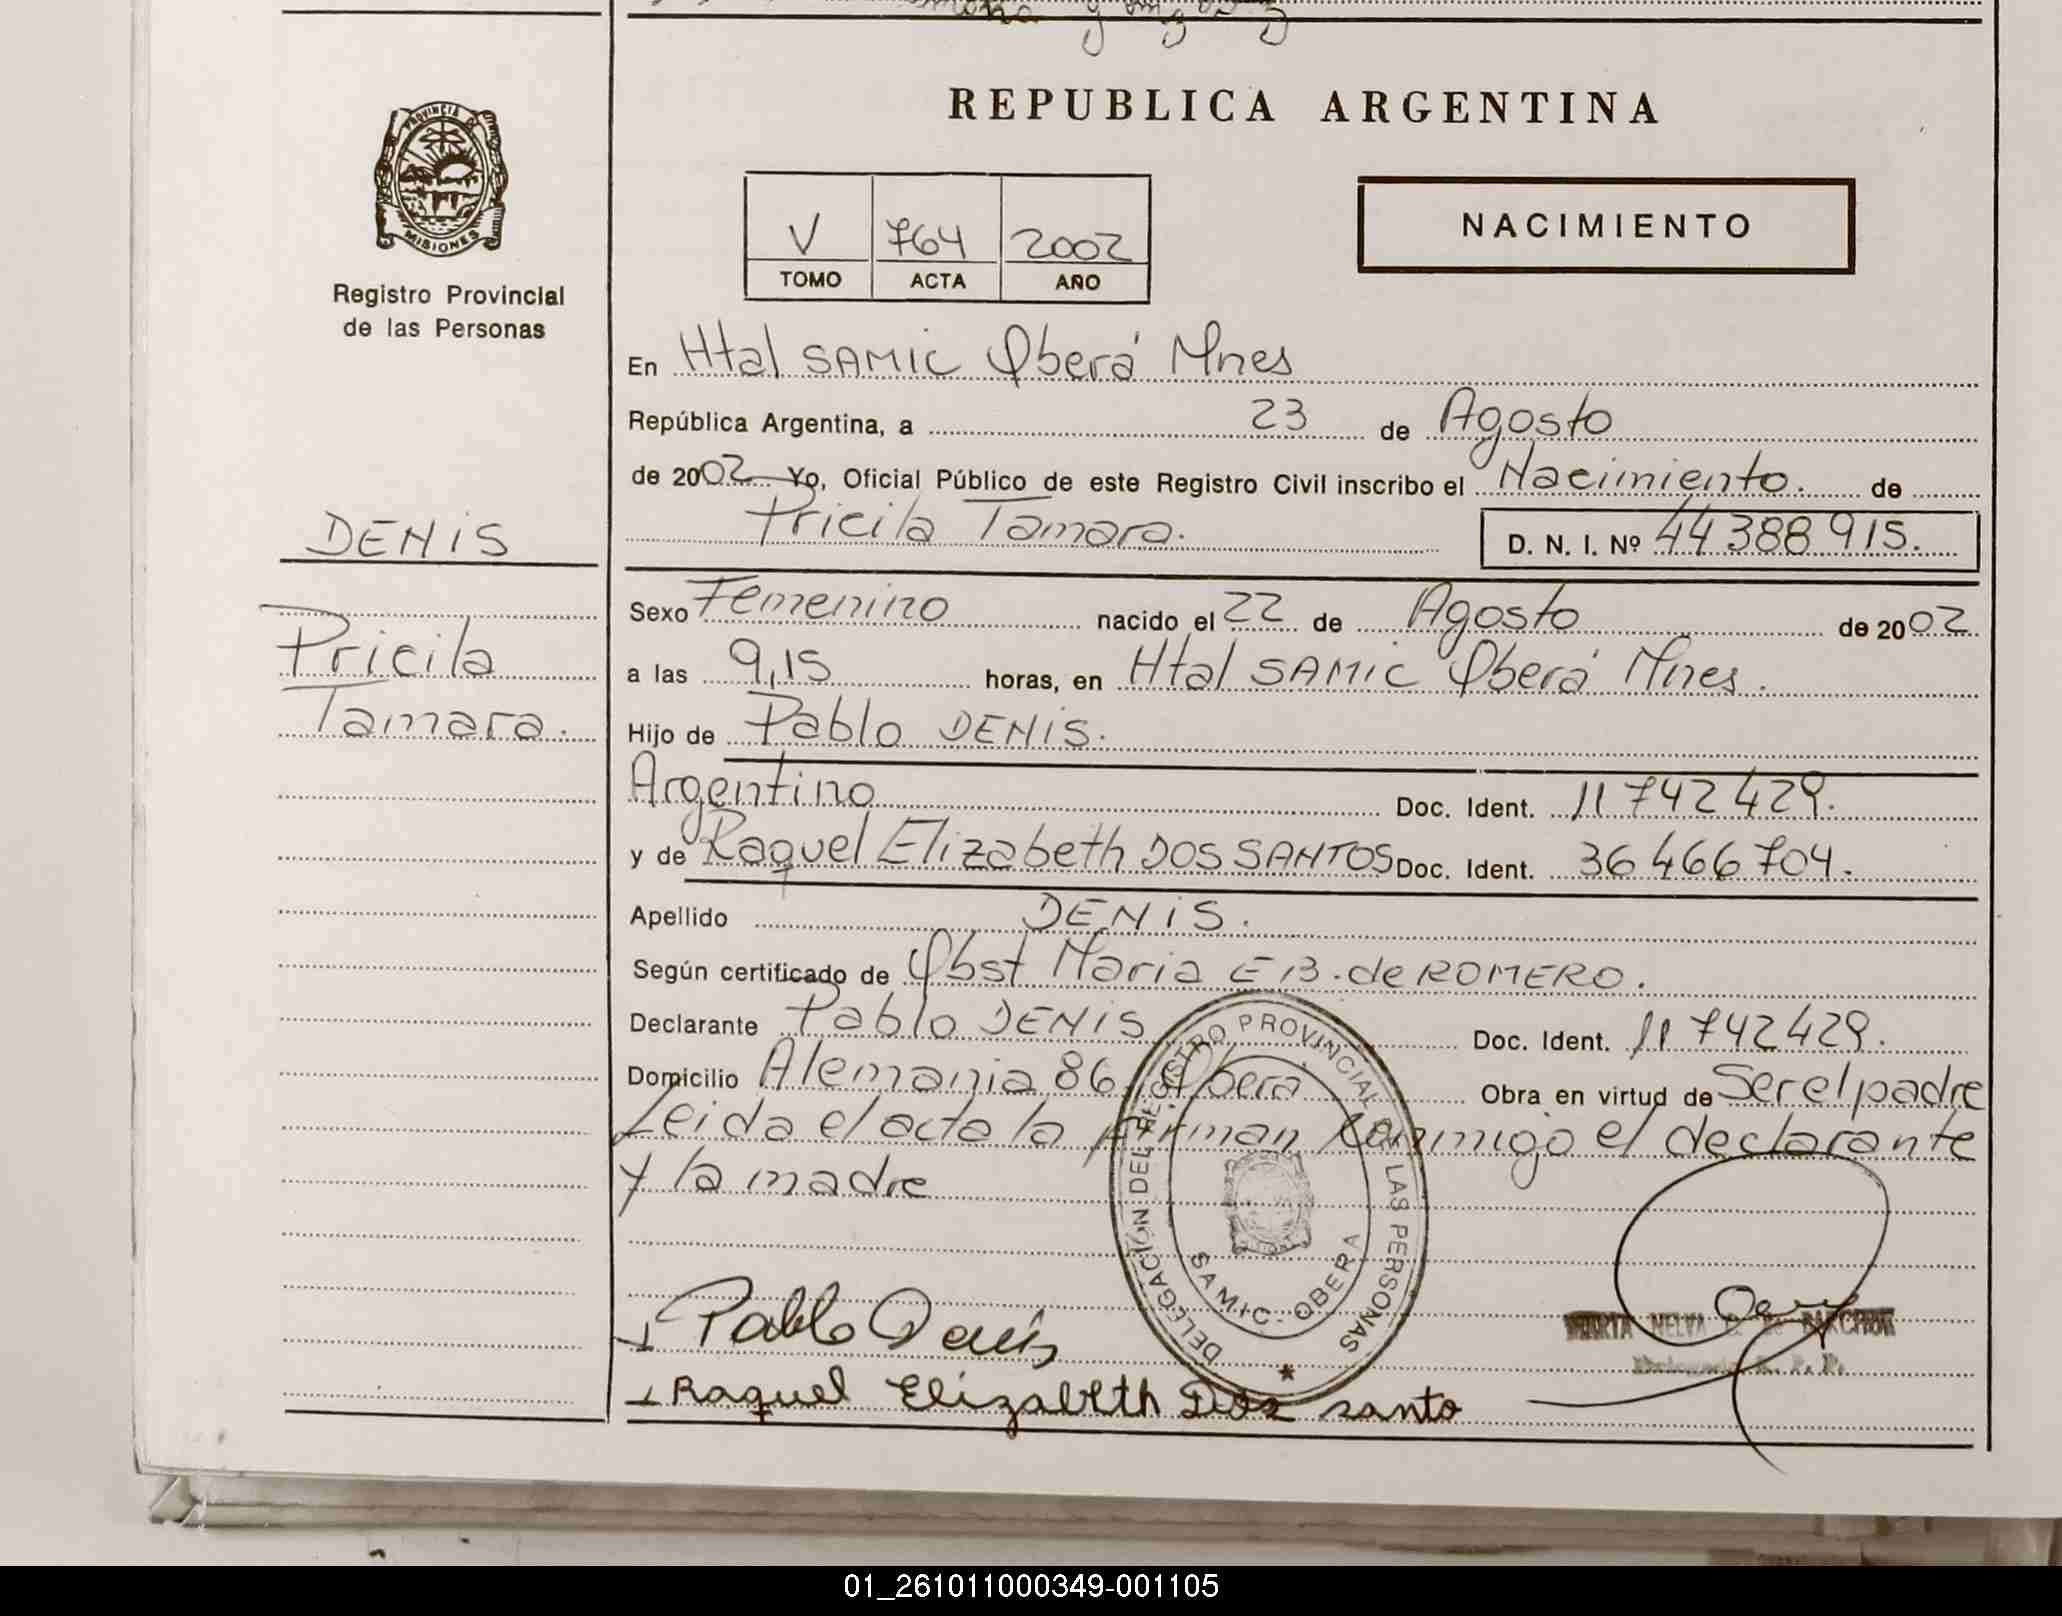 REPUBLICA ARGENTINA
PROVINCIA DE
MISIONES
Registro Provincial
de las Personas
V 764 2002
TOMO ACTA AÑO
NACIMIENTO
En Htal SAMIC Oberá Mnes
República Argentina, a 23 de Agosto
de 2002 Yo, Oficial Público de este Registro Civil inscribo el Nacimiento. de
Pricila Tamara. D. N. I. Nº 44 388 915.
DENIS
Pricila
Tamara.
Sexo Femenino nacido el 22 de Agosto de 2002
a las 9,15 horas, en Htal SAMIC Oberá Mnes.
Hijo de Pablo DENIS.
Argentino Doc. Ident. 11 742 429.
y de Raquel Elizabeth DOS SANTOS Doc. Ident. 36 466 704.
Apellido DENIS.
Según certificado de Obst Maria E B. de ROMERO.
Declarante Pablo DENIS Doc. Ident. 11 742 429.
Domicilio Alemania 86. Oberá Obra en virtud de Ser el padre
Leida el acta la firman conmigo el declarante
y la madre
DELEGACIÓN DEL REGISTRO PROVINCIAL DE LAS PERSONAS
SAMIC - OBERA
Pablo Denis
Raquel Elizabeth Dos santo
01_261011000349-001105